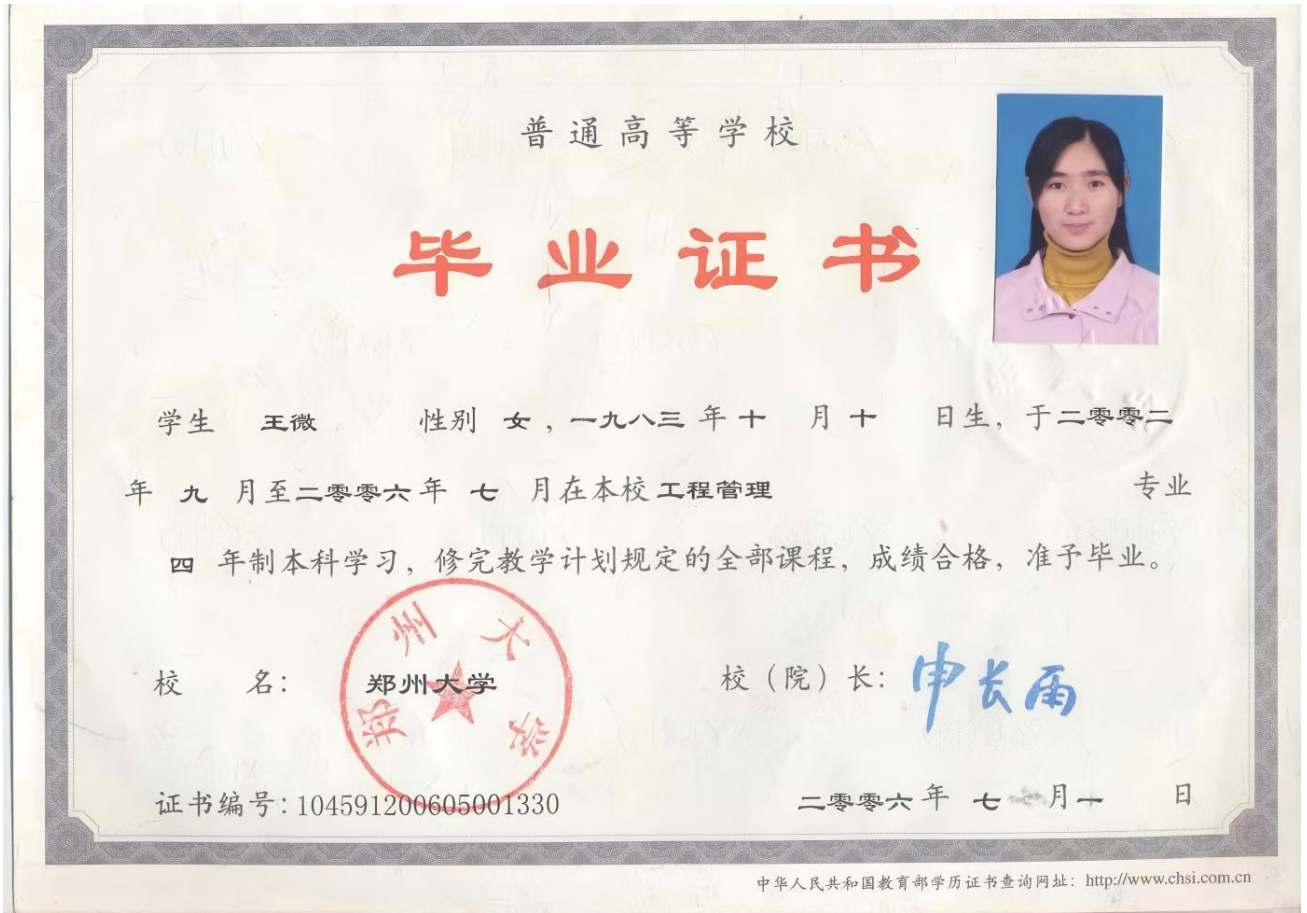 普通高等学校
毕业证书
学生 王微 性别 女，一九八三 年 十 月 十 日生，于 二零零二
年 九 月至 二零零六 年 七 月在本校 工程管理 专业
四 年制本科学习，修完教学计划规定的全部课程，成绩合格，准予毕业。
郑州大学
校 名： 郑州大学 校（院）长：申长雨
证书编号：104591200605001330 二零零六 年 七 月 一 日
中华人民共和国教育部学历证书查询网址：http://www.chsi.com.cn